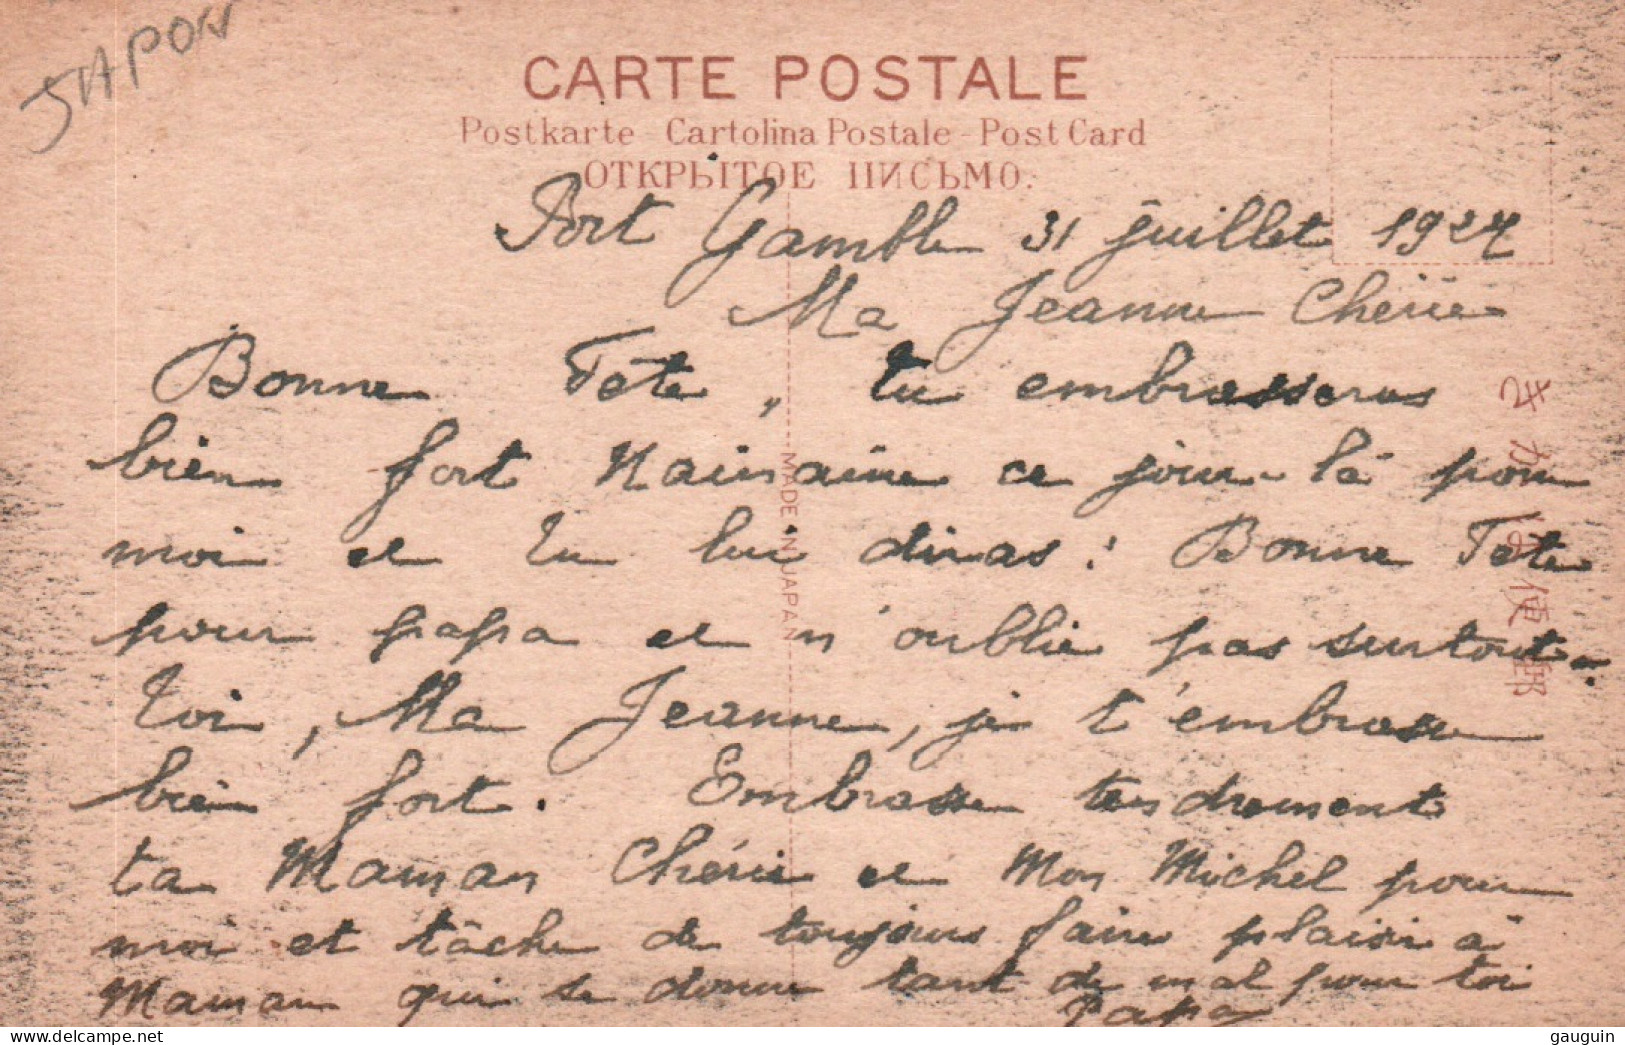 JAPON
CARTE POSTALE
Postkarte - Cartolina Postale - Post Card
ОТКРЫТОЕ ПИСЬМО.
Port Gamble 31 juillet 1927
Ma Jeanne Chérie
Bonne Fête, tu embrasseras
bien fort ce jour-là pour
moi et tu lui diras : Bonne Fête
pour papa et n'oublie pas surtout.
Toi, Ma Jeanne, je t'embrasse
bien fort. Embrasse tendrement
ta Maman Chérie et Mon Michel pour
moi et tâche de toujours faire plaisir à
Maman qui se donne tant de mal pour toi
Papa
MADE IN JAPAN
郵便はかき
gauguin